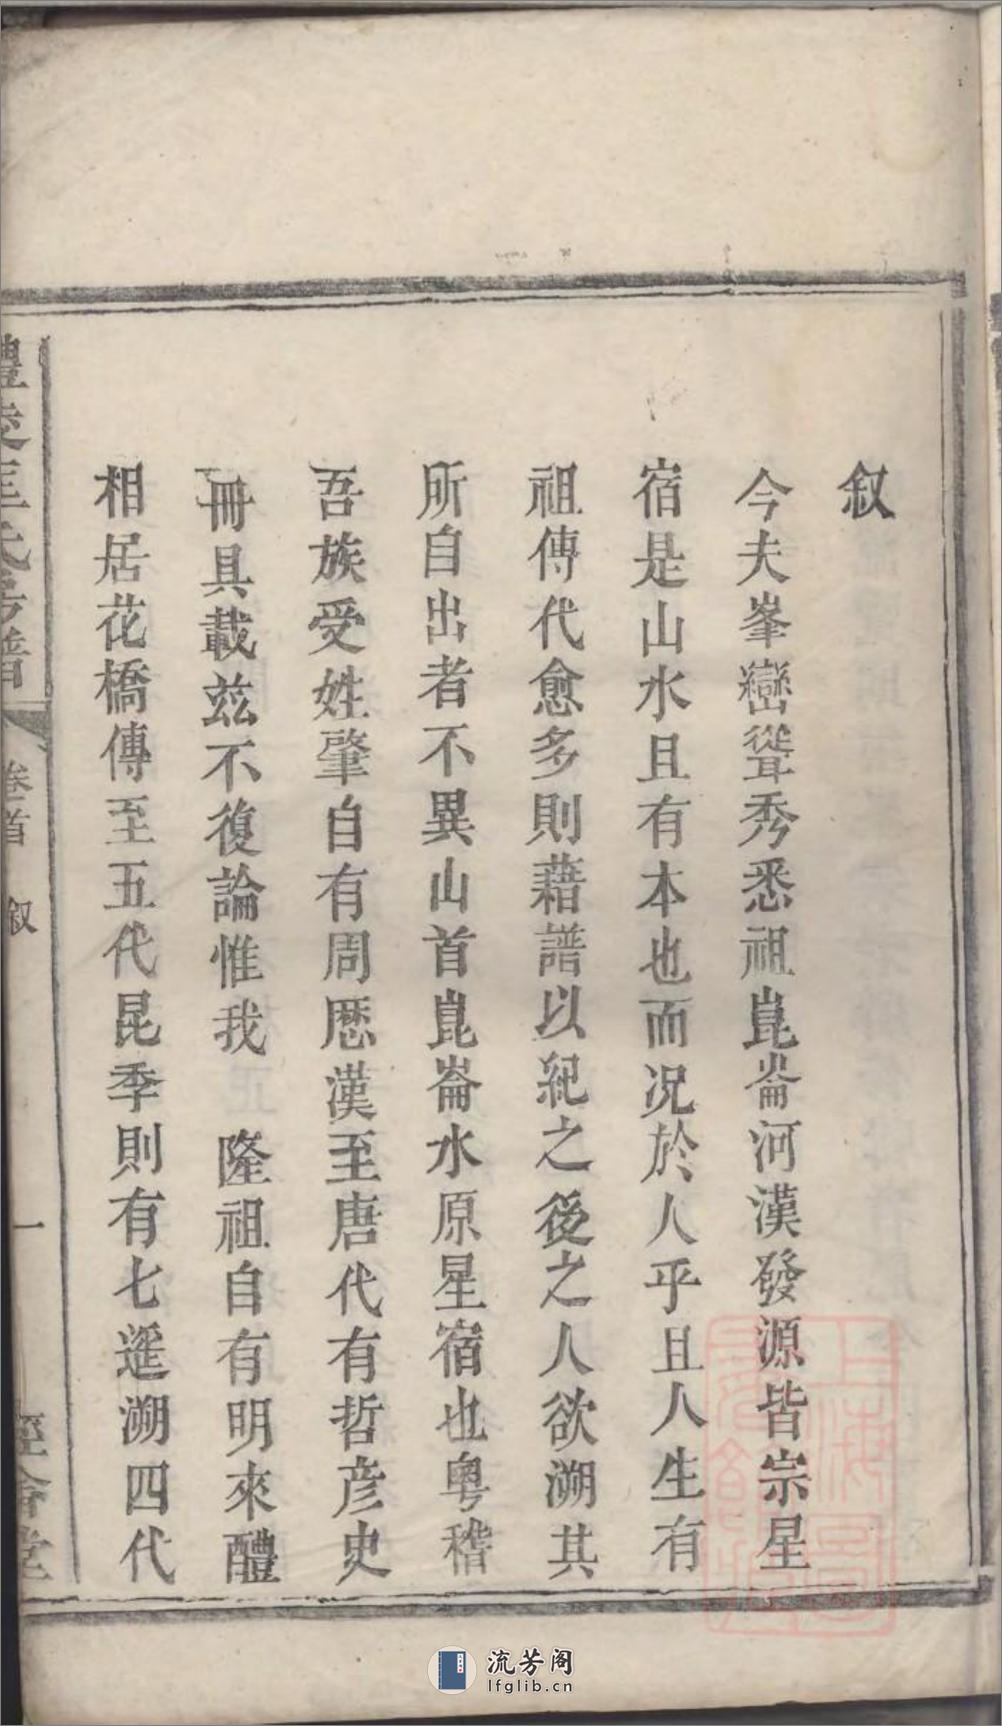 叙
今夫峯巒聳秀悉祖崑崙河漢發源皆宗星
宿是山水且有本也而况於人乎且人生有
祖傳代愈多則藉譜以紀之後之人欲溯其
所自出者不異山首崑崙水原星宿也粤稽
吾族受姓肇自有周歷漢至唐代有哲彦史
冊具載兹不復論惟我 隆祖自有明來醴
相居花橋傳至五代昆季則有七遥溯四代
卷首 叙 一
上海圖
流芳阁
lfglib.cn